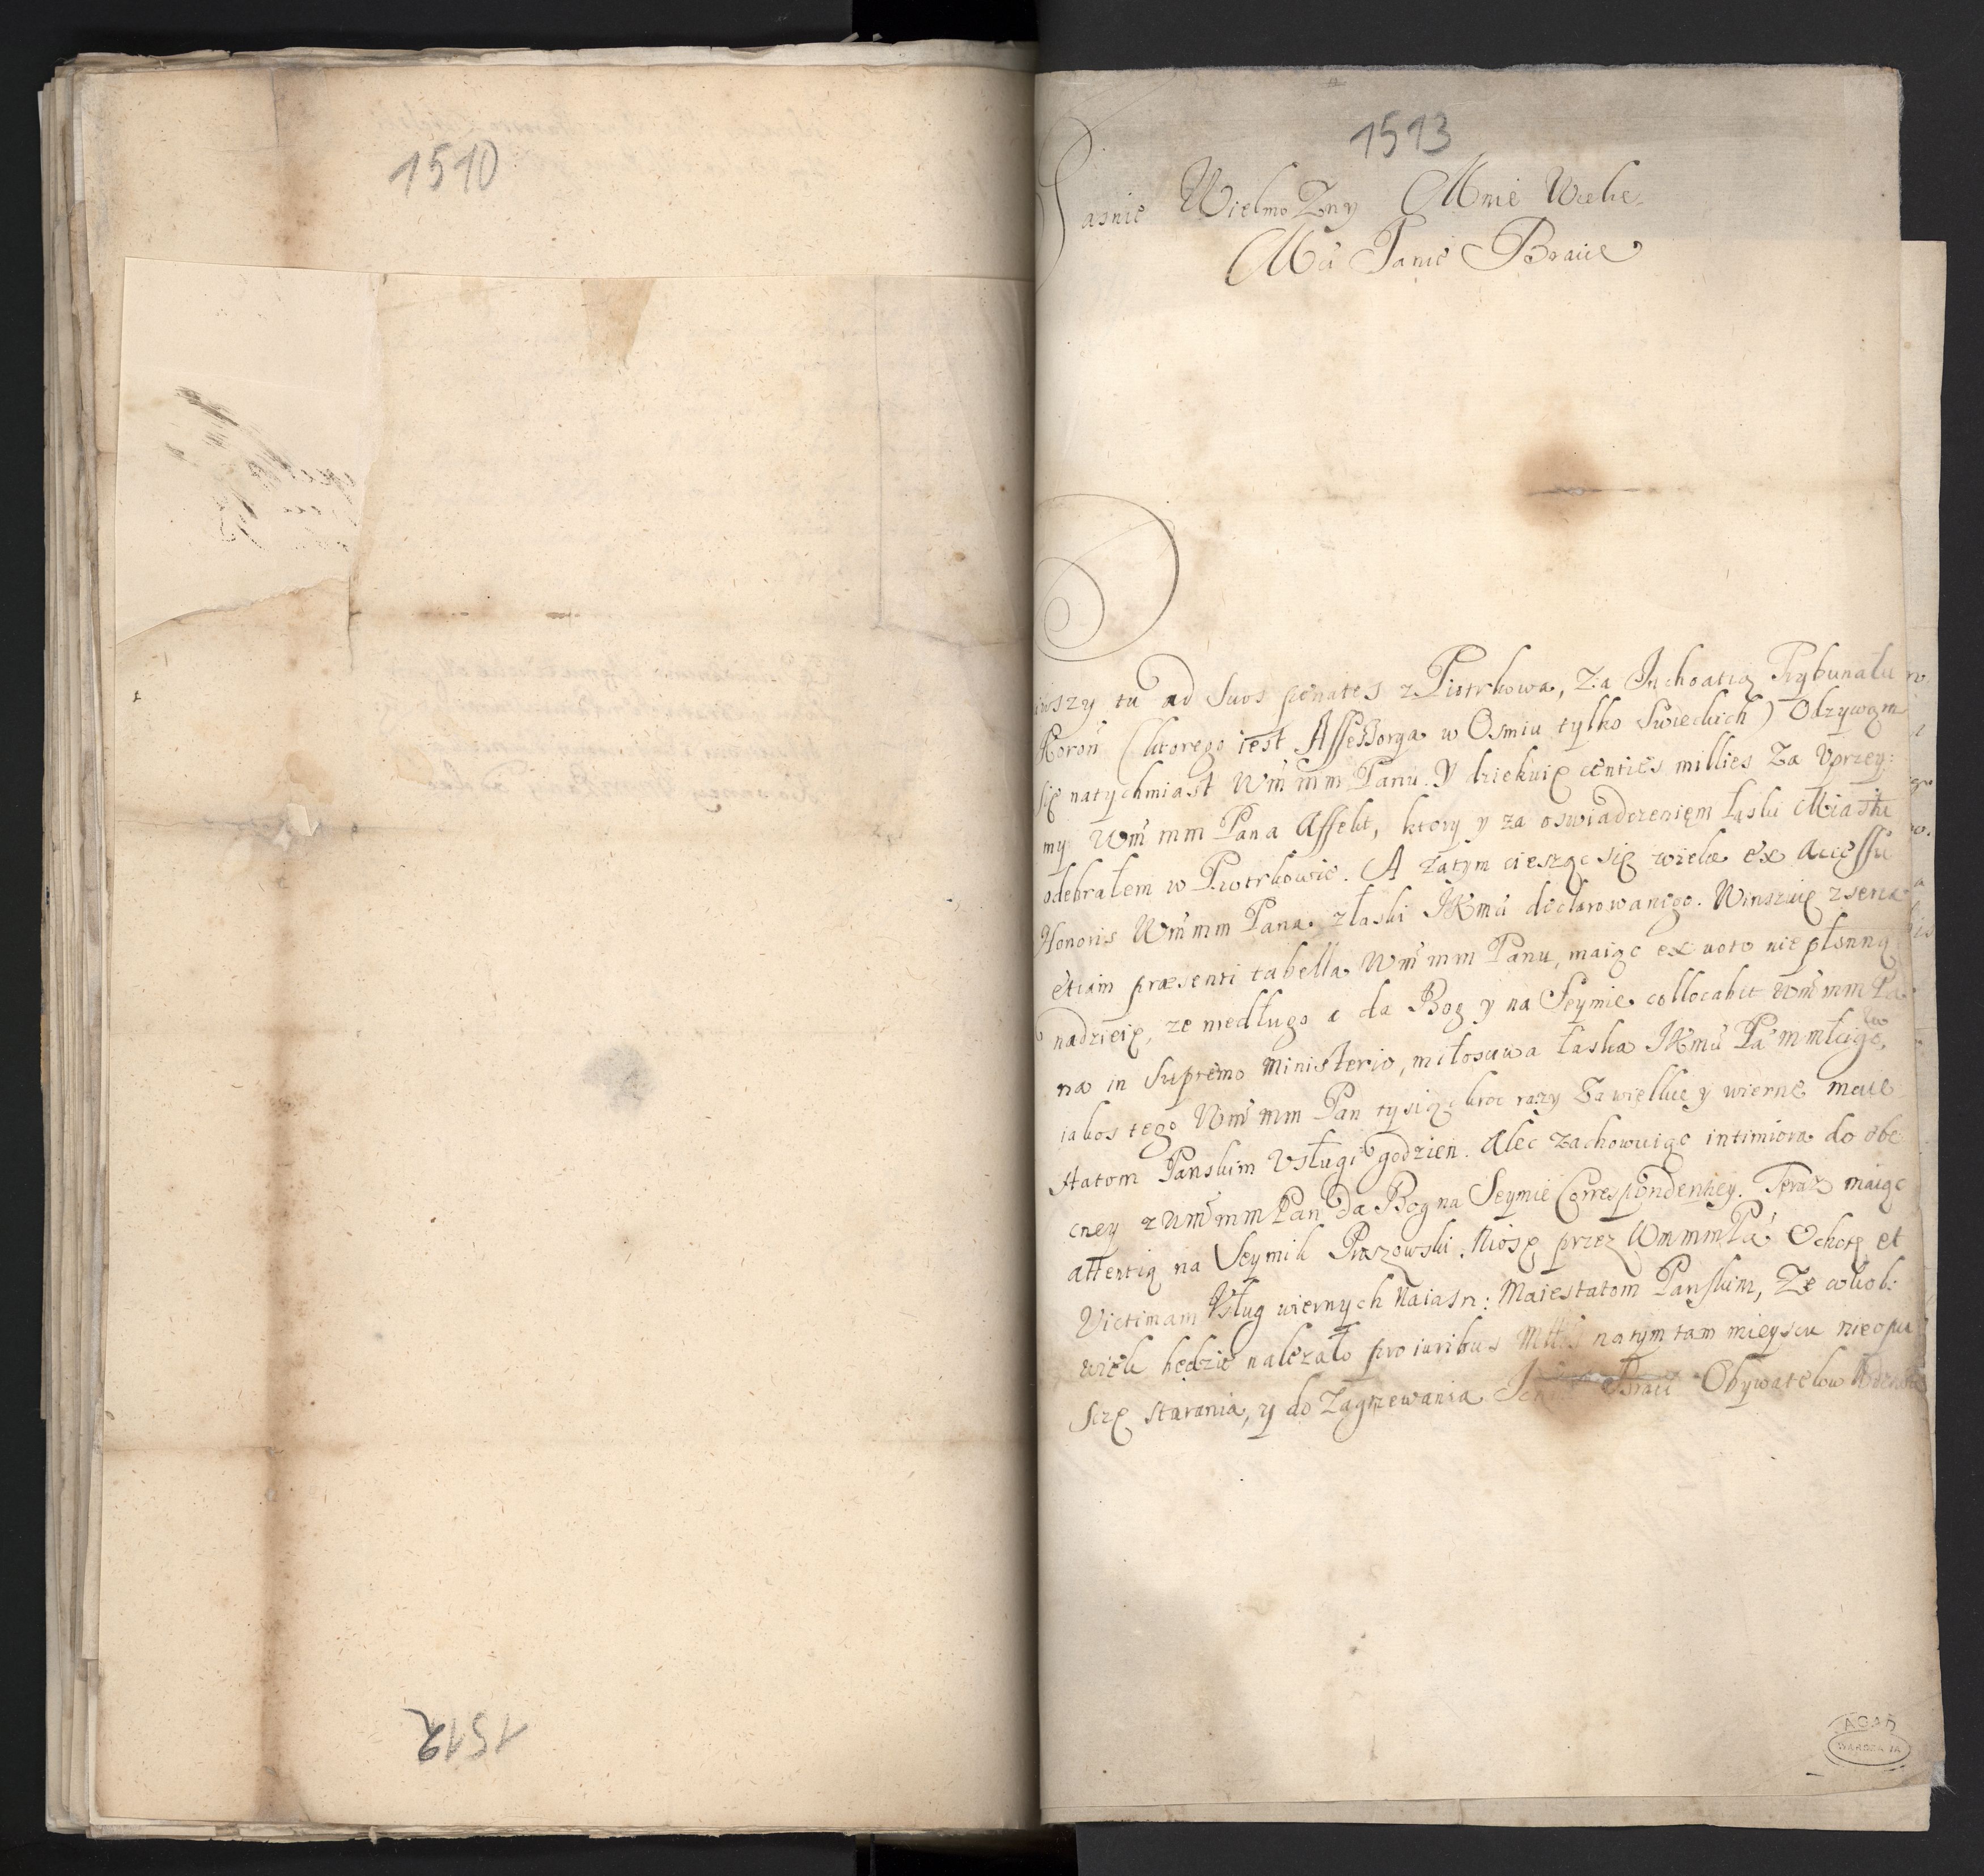 1510
1512
1513
Jasnie WielmoZny Mnie Wielce
Mci Panie Bracie
wszy tu ad Suos penates z Piotrkowa, Za Inchoatią Trybunału
Koroñ (ktorego iest Assessorya w Osmiu tylko Swieckich) Odzywam
się natychmiast Wm̃ mm Panu. Y dziekuię centies millies Za Vprzey:
my Wm̃ mm Pana Affekt, ktory y za oswiadczeniem łaski Miastu
odebrałem w Piotrkowie. A zatym ciesząc się wielce ex Accessu
Honoris Wm̃ mm Pana, złaski JKmci declarowanego. Winszuię zserca
etiam præsenti tabella Wm̃ mm Panu, maiąc ex voto niepłonną
nadzieię, ze niedługo a da Bog y na Seymie collocabit Wm̃ mm Pa
na in Supremo Ministerio, miłosciwa łaska JKmci Pa mmłćigo,
iakos tego Wm̃ mm Pan tysiąckroc razy Za wielkie y wierne maie
statom Panskim Vsługi godzien. Alec zachowuiąc intimiora do obe
cney z Wm̃ mm Pan da Bog na Seymie Correspondentiey. Teraz maiąc
attentią na Seymik Proszowski. Niosę przez Wmmm Pa Ochotę et
Victimam Vsług wiernych Naiasn: Maiestatom Panskim, Ze cokol:
wiek będzie nalezało pro iuribus Mttis natym tam mieyscu nieopu
sczę starania, y do Zagrzewania Braci Obywatelow
AGAD
WARSZAWA